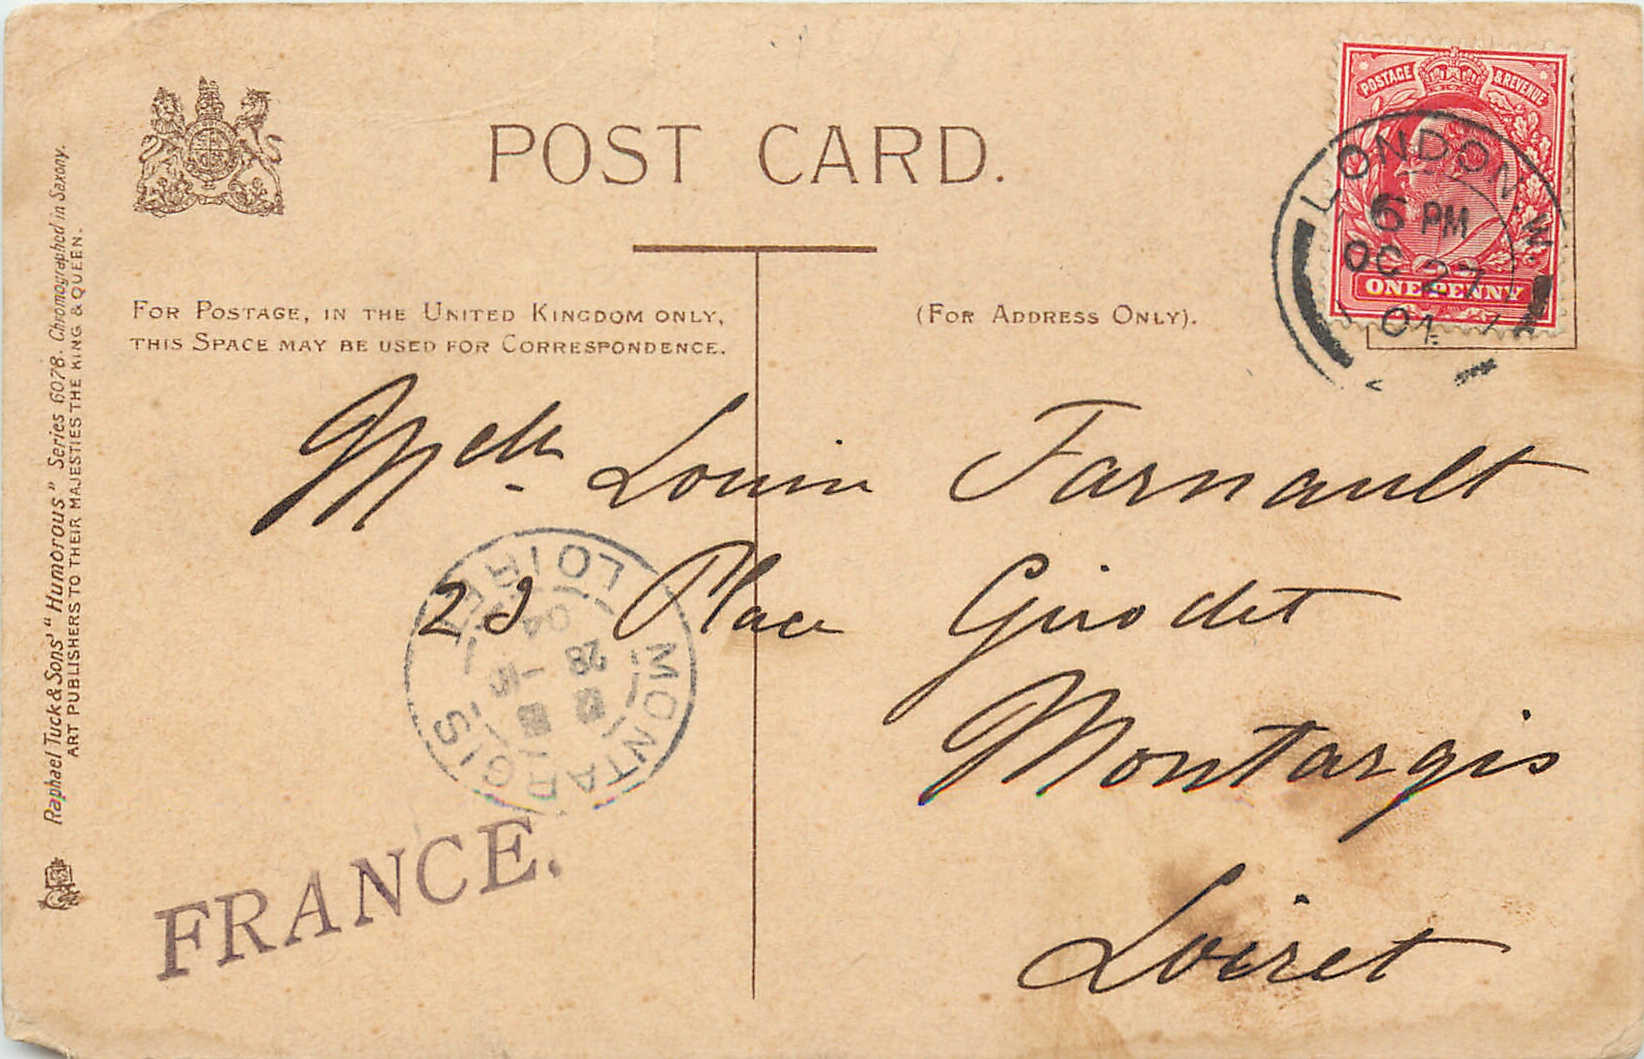 POST CARD.
POSTAGE & REVENUE
ONE PENNY
LONDON. W.
6 PM
OC 27
04
FOR POSTAGE, IN THE UNITED KINGDOM ONLY,
THIS SPACE MAY BE USED FOR CORRESPONDENCE.
(FOR ADDRESS ONLY).
Raphael Tuck & Sons' "Humorous" Series 6078. Chromographed in Saxony.
ART PUBLISHERS TO THEIR MAJESTIES THE KING & QUEEN.
Melle Louise Farnault
Place Girodet
Montargis
Loiret
MONTARGIS
LOIRET
28
04
FRANCE.